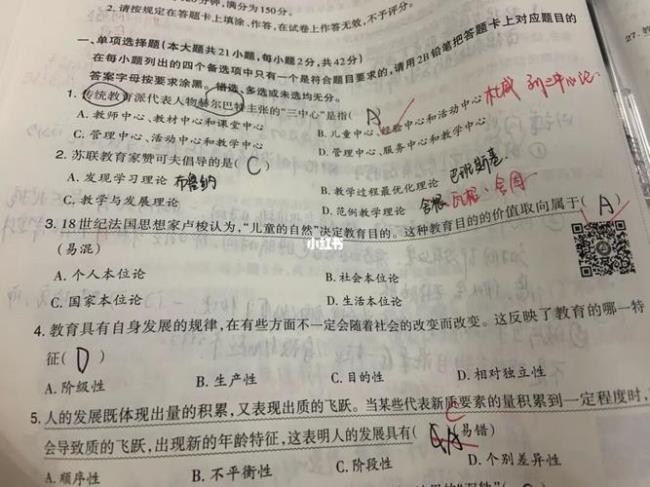 分钟,满分为150分。
2. 请按规定在答题卡上填涂、作答,在试卷上作答无效,不予评分。
一、单项选择题(本大题共21小题,每小题2分,共42分)
在每小题列出的四个备选项中只有一个是符合题目要求的,请用2B铅笔把答题卡上对应题目的
答案字母按要求涂黑。错选、多选或未选均无分。
1. 传统教育派代表人物赫尔巴特主张的“三中心”是指( A )
杜威 新三中心论
A. 教师中心、教材中心和课堂中心 B. 儿童中心、经验中心和活动中心
C. 管理中心、活动中心和教学中心 D. 管理中心、服务中心和教学中心
2. 苏联教育家赞可夫倡导的是( C )
A. 发现学习理论 布鲁纳 B. 教学过程最优化理论 巴班斯基
C. 教学与发展理论 D. 范例教学理论
3. 18世纪法国思想家卢梭认为,“儿童的自然”决定教育目的。这种教育目的的价值取向属于( A )
(易混)
小红书
A. 个人本位论 B. 社会本位论
C. 国家本位论 D. 生活本位论
4. 教育具有自身发展的规律,在有些方面不一定会随着社会的改变而改变。这反映了教育的哪一特
征( D )
A. 阶级性 B. 生产性 C. 目的性 D. 相对独立性
5. 人的发展既体现出量的积累,又表现出质的飞跃。当某些代表新质要素的量积累到一定程度时,
会导致质的飞跃,出现新的年龄特征,这表明人的发展具有( C 易错)
A. 顺序性 B. 不平衡性 C. 阶段性 D. 个别差异性
27.